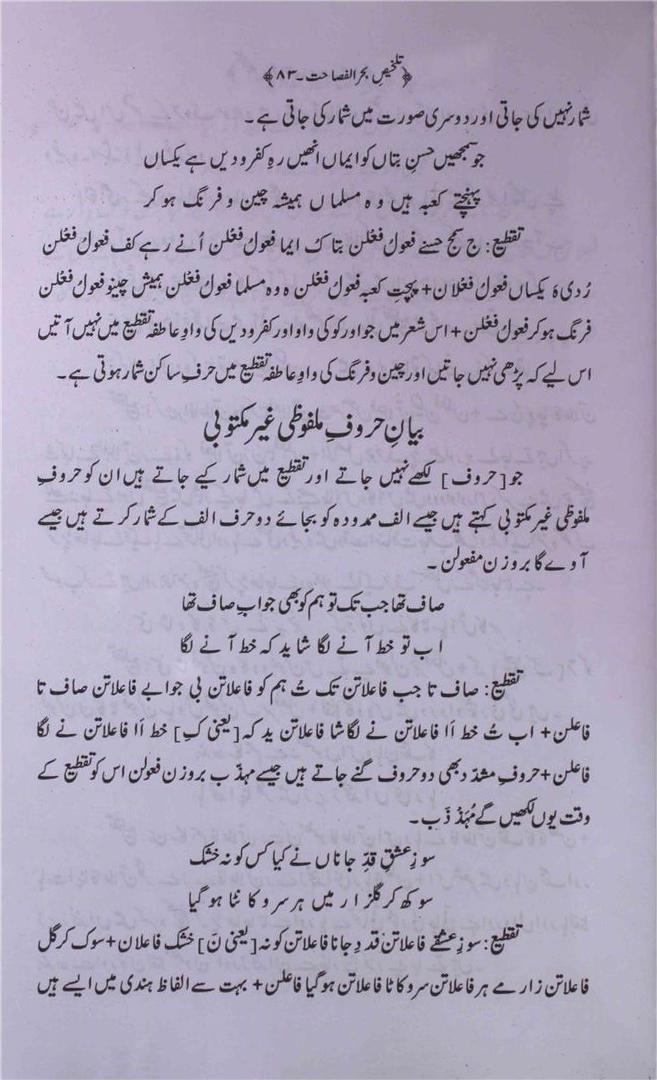 ﴿تلخیصِ بحر الفصاحت۔۸۳﴾
شمار نہیں کی جاتی اور دوسری صورت میں شمار کی جاتی ہے۔
جو سمجھیں حسنِ بتاں کو ایماں انھیں رہِ کفر و دیں ہے یکساں
پہنچتے کعبہ ہیں وہ مسلماں ہمیشہ چین و فرنگ ہو کر
تقطیع: ج سمج حسنے فعول فعْلن بتا کُ ایما فعول فعْلن اُنے رہے کف فعول فعْلن
رُدی ہَ یکساں فعول فعْلان+ پہچت کعبہ فعول فعْلن ہ وہ مسلما فعول فعْلن ہمیش چینو فعول فعْلن
فرنگ ہو کر فعول فعْلن + اس شعر میں جو اور کو کی واو اور کفر و دیں کی واوِ عاطفہ تقطیع میں نہیں آتیں
اس لیے کہ پڑھی نہیں جاتیں اور چین و فرنگ کی واوِ عاطفہ تقطیع میں حرفِ ساکن شمار ہوتی ہے۔
بیانِ حروفِ ملفوظی غیر مکتوبی
جو [حروف] لکھے نہیں جاتے اور تقطیع میں شمار کیے جاتے ہیں ان کو حروفِ
ملفوظی غیر مکتوبی کہتے ہیں جیسے الف ممدودہ کو بجائے دو حرف الف کے شمار کرتے ہیں جیسے
آوے گا بروزن مفعولن۔
صاف تھا جب تک تو ہم کو بھی جوابِ صاف تھا
اب تو خط آنے لگا شاید کہ خط آنے لگا
تقطیع: صاف تا جب فاعلاتن تک تُ ہم کو فاعلاتن بی جوابے فاعلاتن صاف تا
فاعلن+ اب تُ خط اَا فاعلاتن نے لگا شا فاعلاتن ید کہ [یعنی کِ] خط اَا فاعلاتن نے لگا
فاعلن+ حروفِ مشدد بھی دو حروف گنے جاتے ہیں جیسے مہذّب بروزن فعولن اس کو تقطیع کے
وقت یوں لکھیں گے مُہَذْ ذَب۔
سوزِ عشقِ قدِّ جاناں نے کیا کس کو نہ خشک
سوکھ کر گلزار میں ہر سرو کانٹا ہو گیا
تقطیع: سوزِ عشقے فاعلاتن قد دِ جانا فاعلاتن کو نہ [یعنی نَ] خشک فاعلان+ سوک کر گل
فاعلاتن زار مے ہر فاعلاتن سرو کاٹا فاعلاتن ہو گیا فاعلن+ بہت سے الفاظ ہندی میں ایسے ہیں